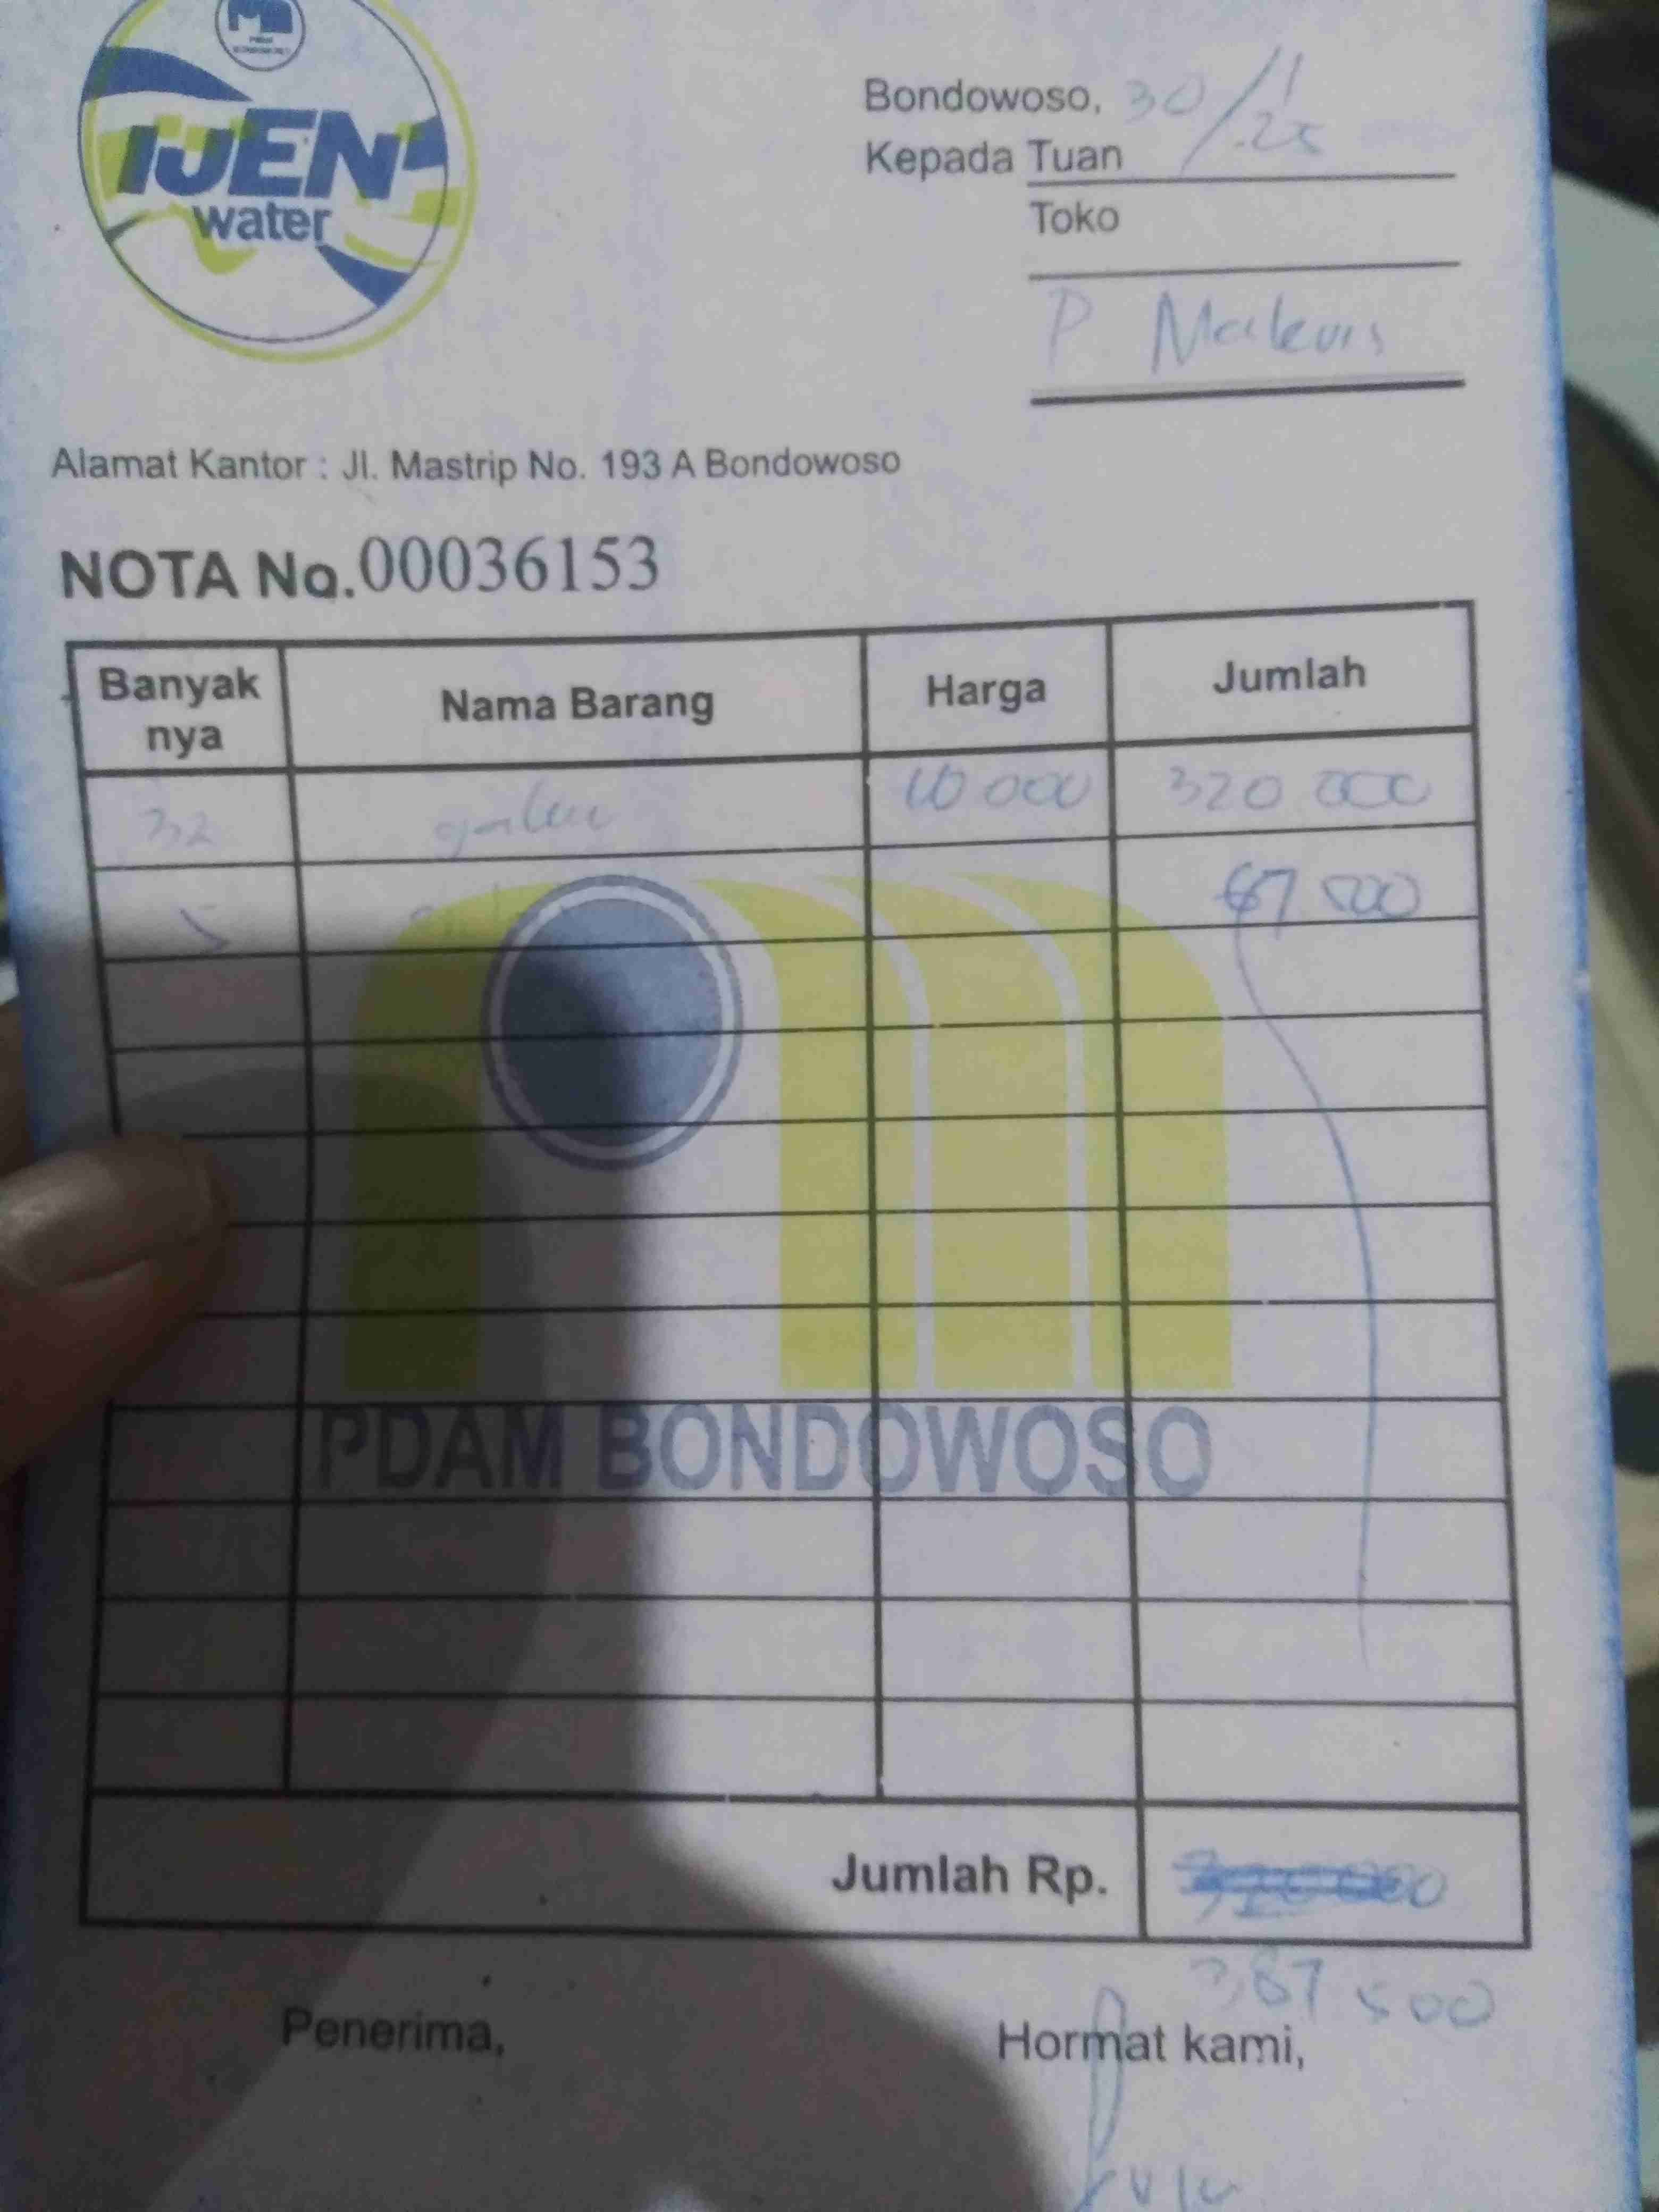 IJEN
water
Bondowoso, 30/1.25
Kepada Tuan
Toko
P
Alamat Kantor : Jl. Mastrip No. 193 A Bondowoso
NOTA No. 00036153
Banyak nya Nama Barang Harga Jumlah
32 galon 10 000 320 000
5 67 500
PDAM BONDOWOSO
Jumlah Rp. 320 000
387 500
Penerima, Hormat kami,